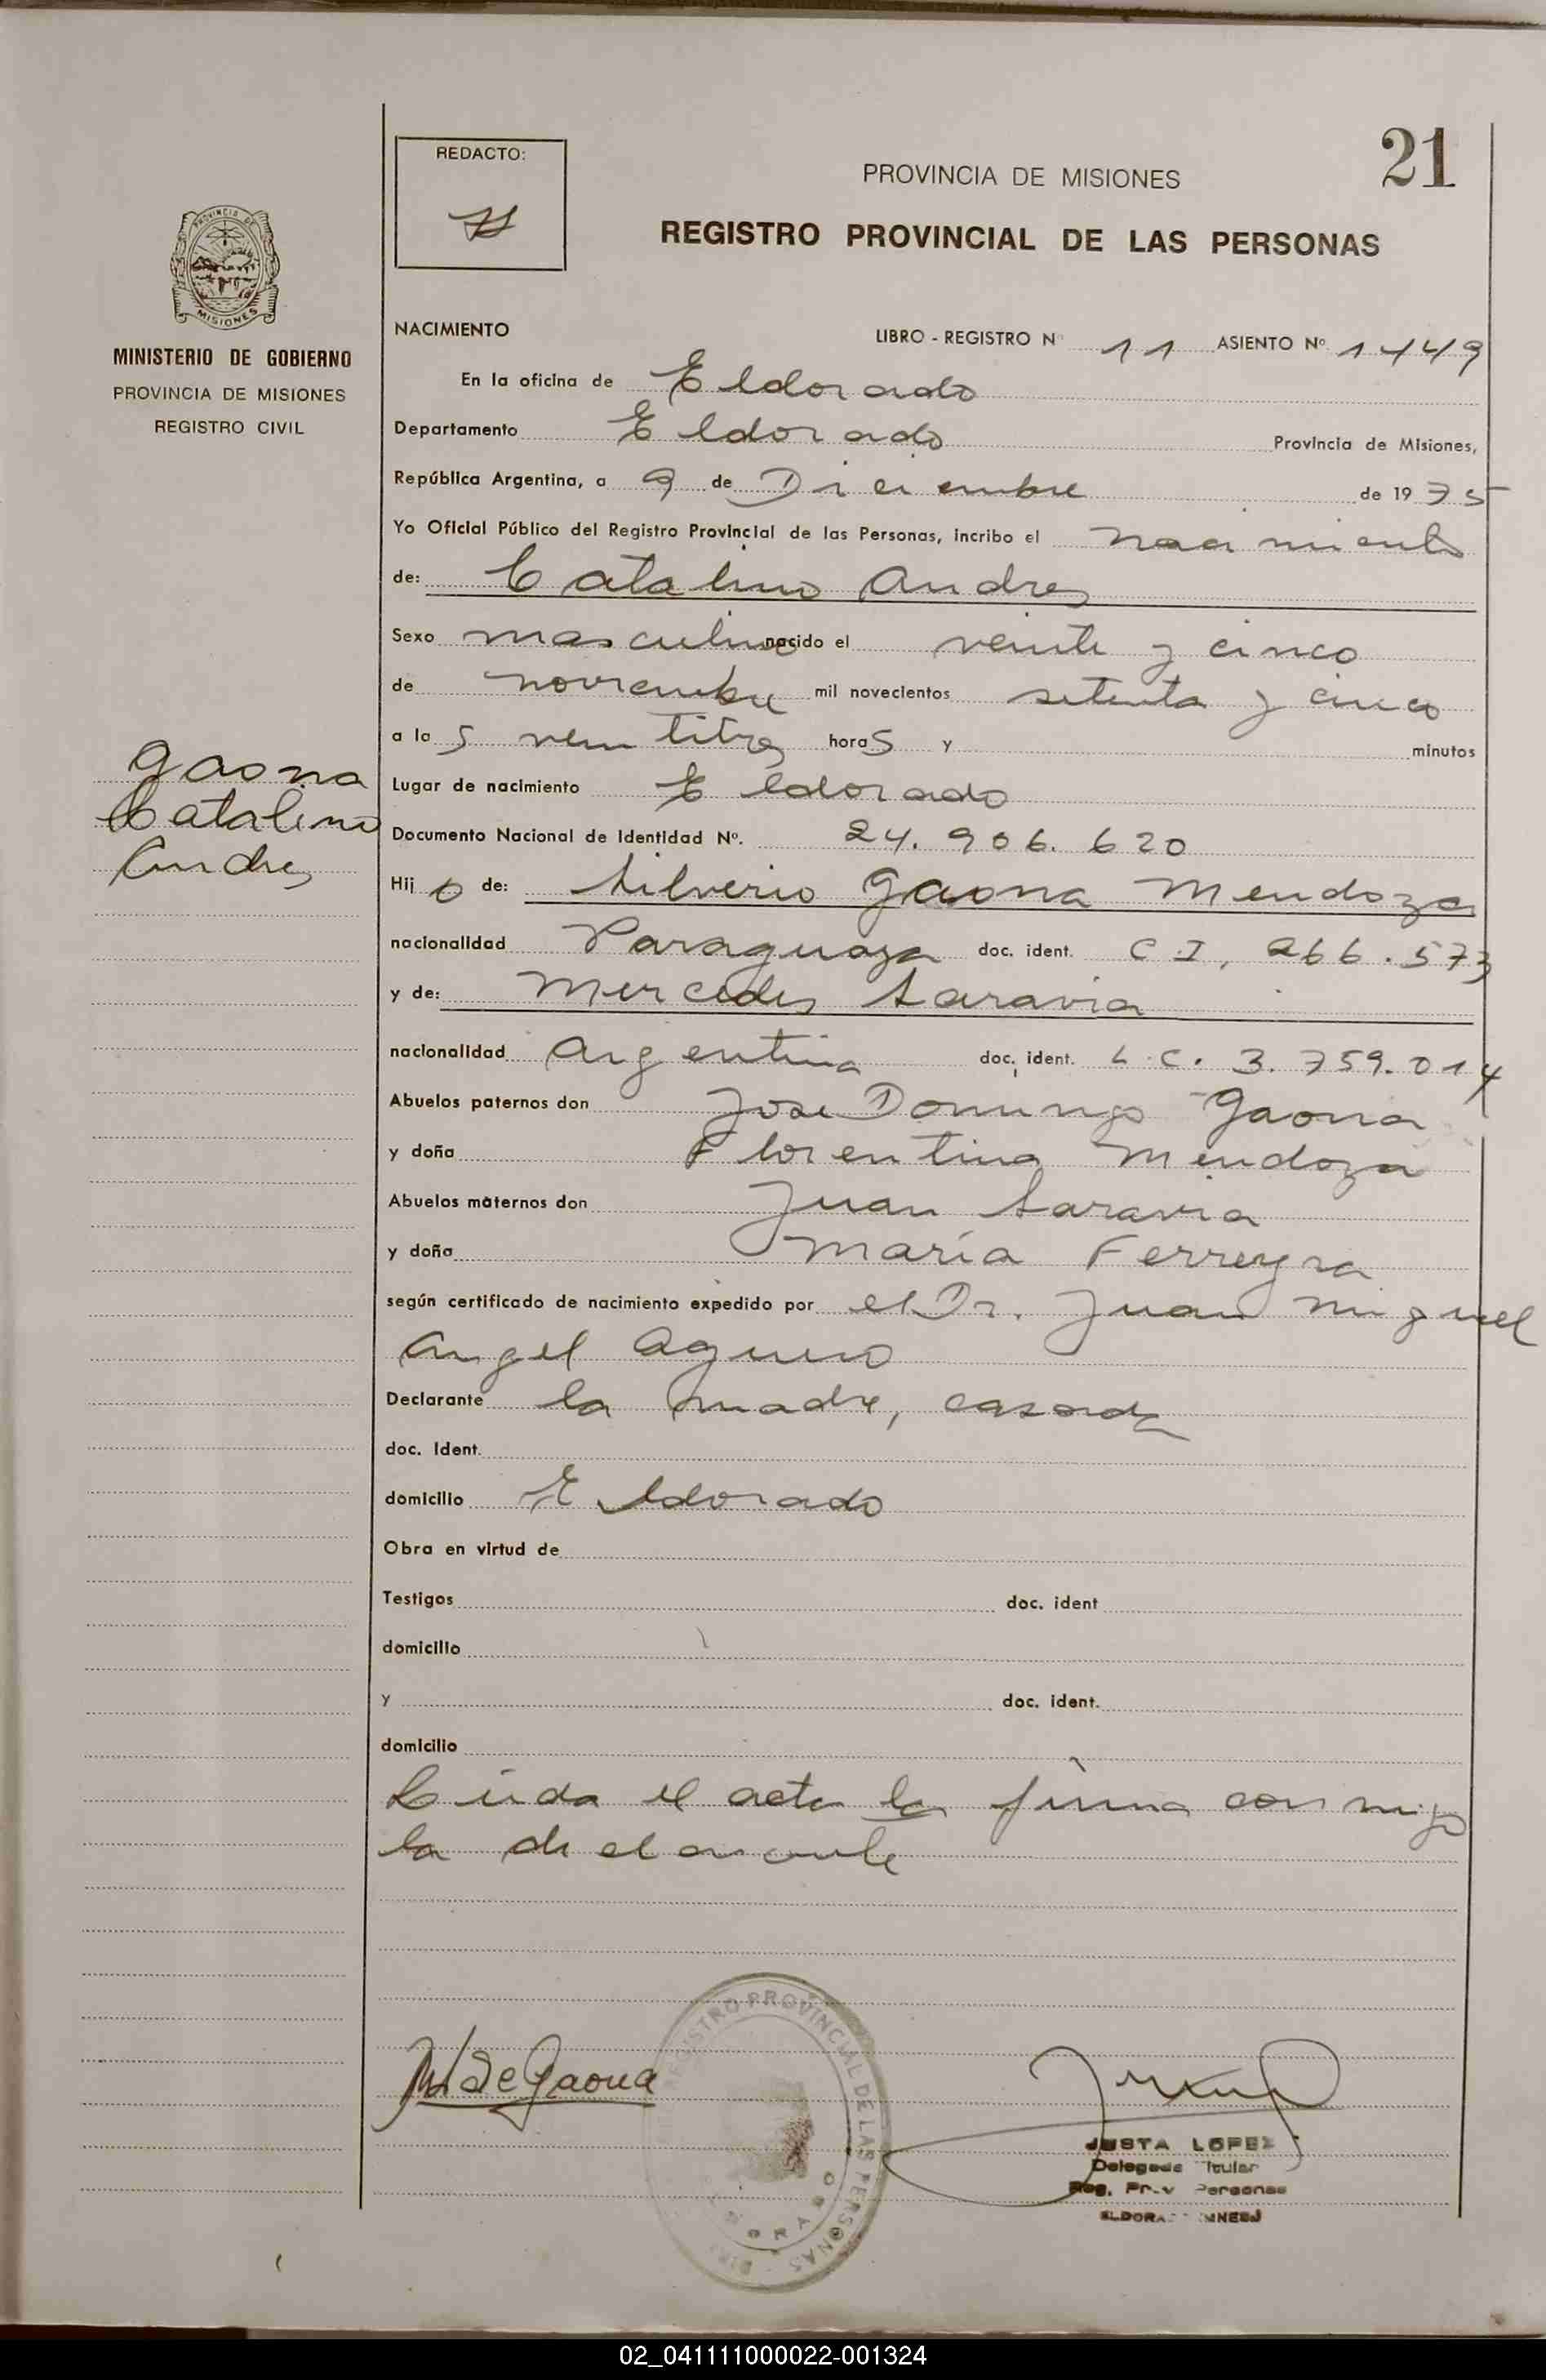 REDACTO:
21
PROVINCIA DE MISIONES
REGISTRO PROVINCIAL DE LAS PERSONAS
MISIONES
MINISTERIO DE GOBIERNO
PROVINCIA DE MISIONES
REGISTRO CIVIL
NACIMIENTO LIBRO - REGISTRO Nº 11 ASIENTO Nº 1449
En la oficina de Eldorado
Departamento Eldorado Provincia de Misiones,
República Argentina, a 9 de Diciembre de 1975
Yo Oficial Público del Registro Provincial de las Personas, incribo el nacimiento
de: Catalino Andres
Sexo masculino nacido el veinte y cinco
de noviembre mil novecientos setenta y cinco
a las veintitres horas y minutos
Gaona
Catalino
Andres
Lugar de nacimiento Eldorado
Documento Nacional de Identidad Nº. 24.906.620
Hijo de: Silverio Gaona Mendoza
nacionalidad Paraguaya doc. ident. C I, 266.573
y de: Mercedes Saravia
nacionalidad Argentina doc. ident. L.C. 3.759.014
Abuelos paternos don Jose Domingo Gaona
y doña Florentina Mendoza
Abuelos maternos don Juan Saravia
y doña María Ferreyra
según certificado de nacimiento expedido por el Dr. Juan Miguel
Angel Aguero
Declarante la madre, casada
doc. Ident.
domicilio Eldorado
Obra en virtud de
Testigos doc. ident
domicilio
y doc. ident.
domicilio
Leida el acta la firma conmigo
la declarante
M S de Gaona
REGISTRO PROVINCIAL DE LAS PERSONAS
JUSTA LOPEZ
Delegada Titular
Reg. Prov Personas
02_041111000022-001324